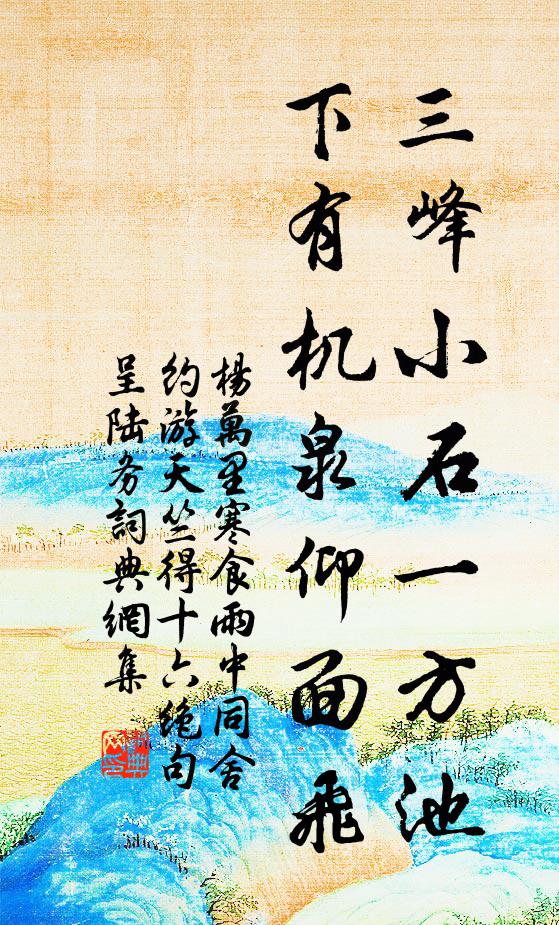 三峰小石一方池
下有机泉仰面飛
楊萬里寒食雨中同舍
約游天竺得十六絕句
呈陆务詞典網集